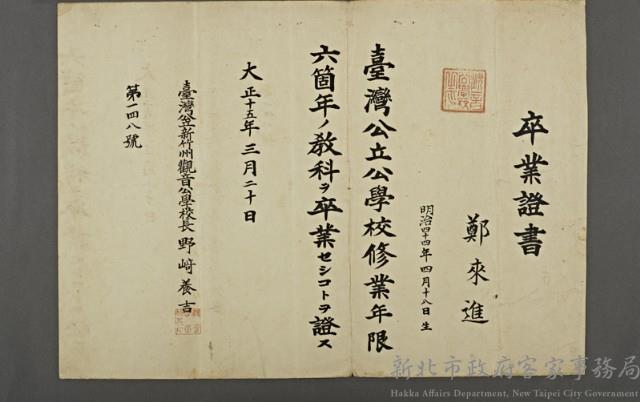 卒業證書
鄭來進
明治四十四年四月十八日生
臺灣公立公學校修業年限
六箇年ノ教科ヲ卒業セシコトヲ證ス
大正十五年三月二十日
臺灣公立新竹州觀音公學校長野﨑養吉
第一四八號
新北市政府客家事務局
Hakka Affairs Department, New Taipei City Government